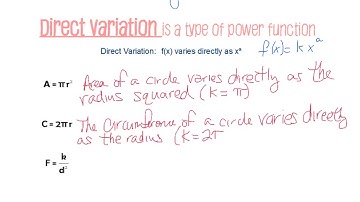 Direct Variation is a type of power function
Direct Variation: f(x) varies directly as xᵃ f(x) = k xᵃ
A = πr² Area of a circle varies directly as the
radius squared (k = π)
C = 2πr The Circumference of a circle varies directly
as the radius (k = 2π
F = k/d²